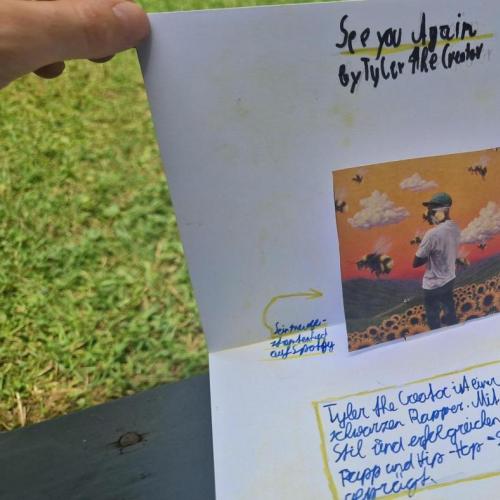 See you Again
by Tyler the Creator
auf Spotify
Tyler the Creator ist ein
schwarzen Rapper. Mit
Stil und erfolgreichen
Rapp und Hip-Hop-S
geprägt.